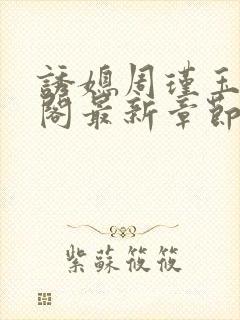 誘媳周瑾玉
閣最新章節
紫蘇筱筱